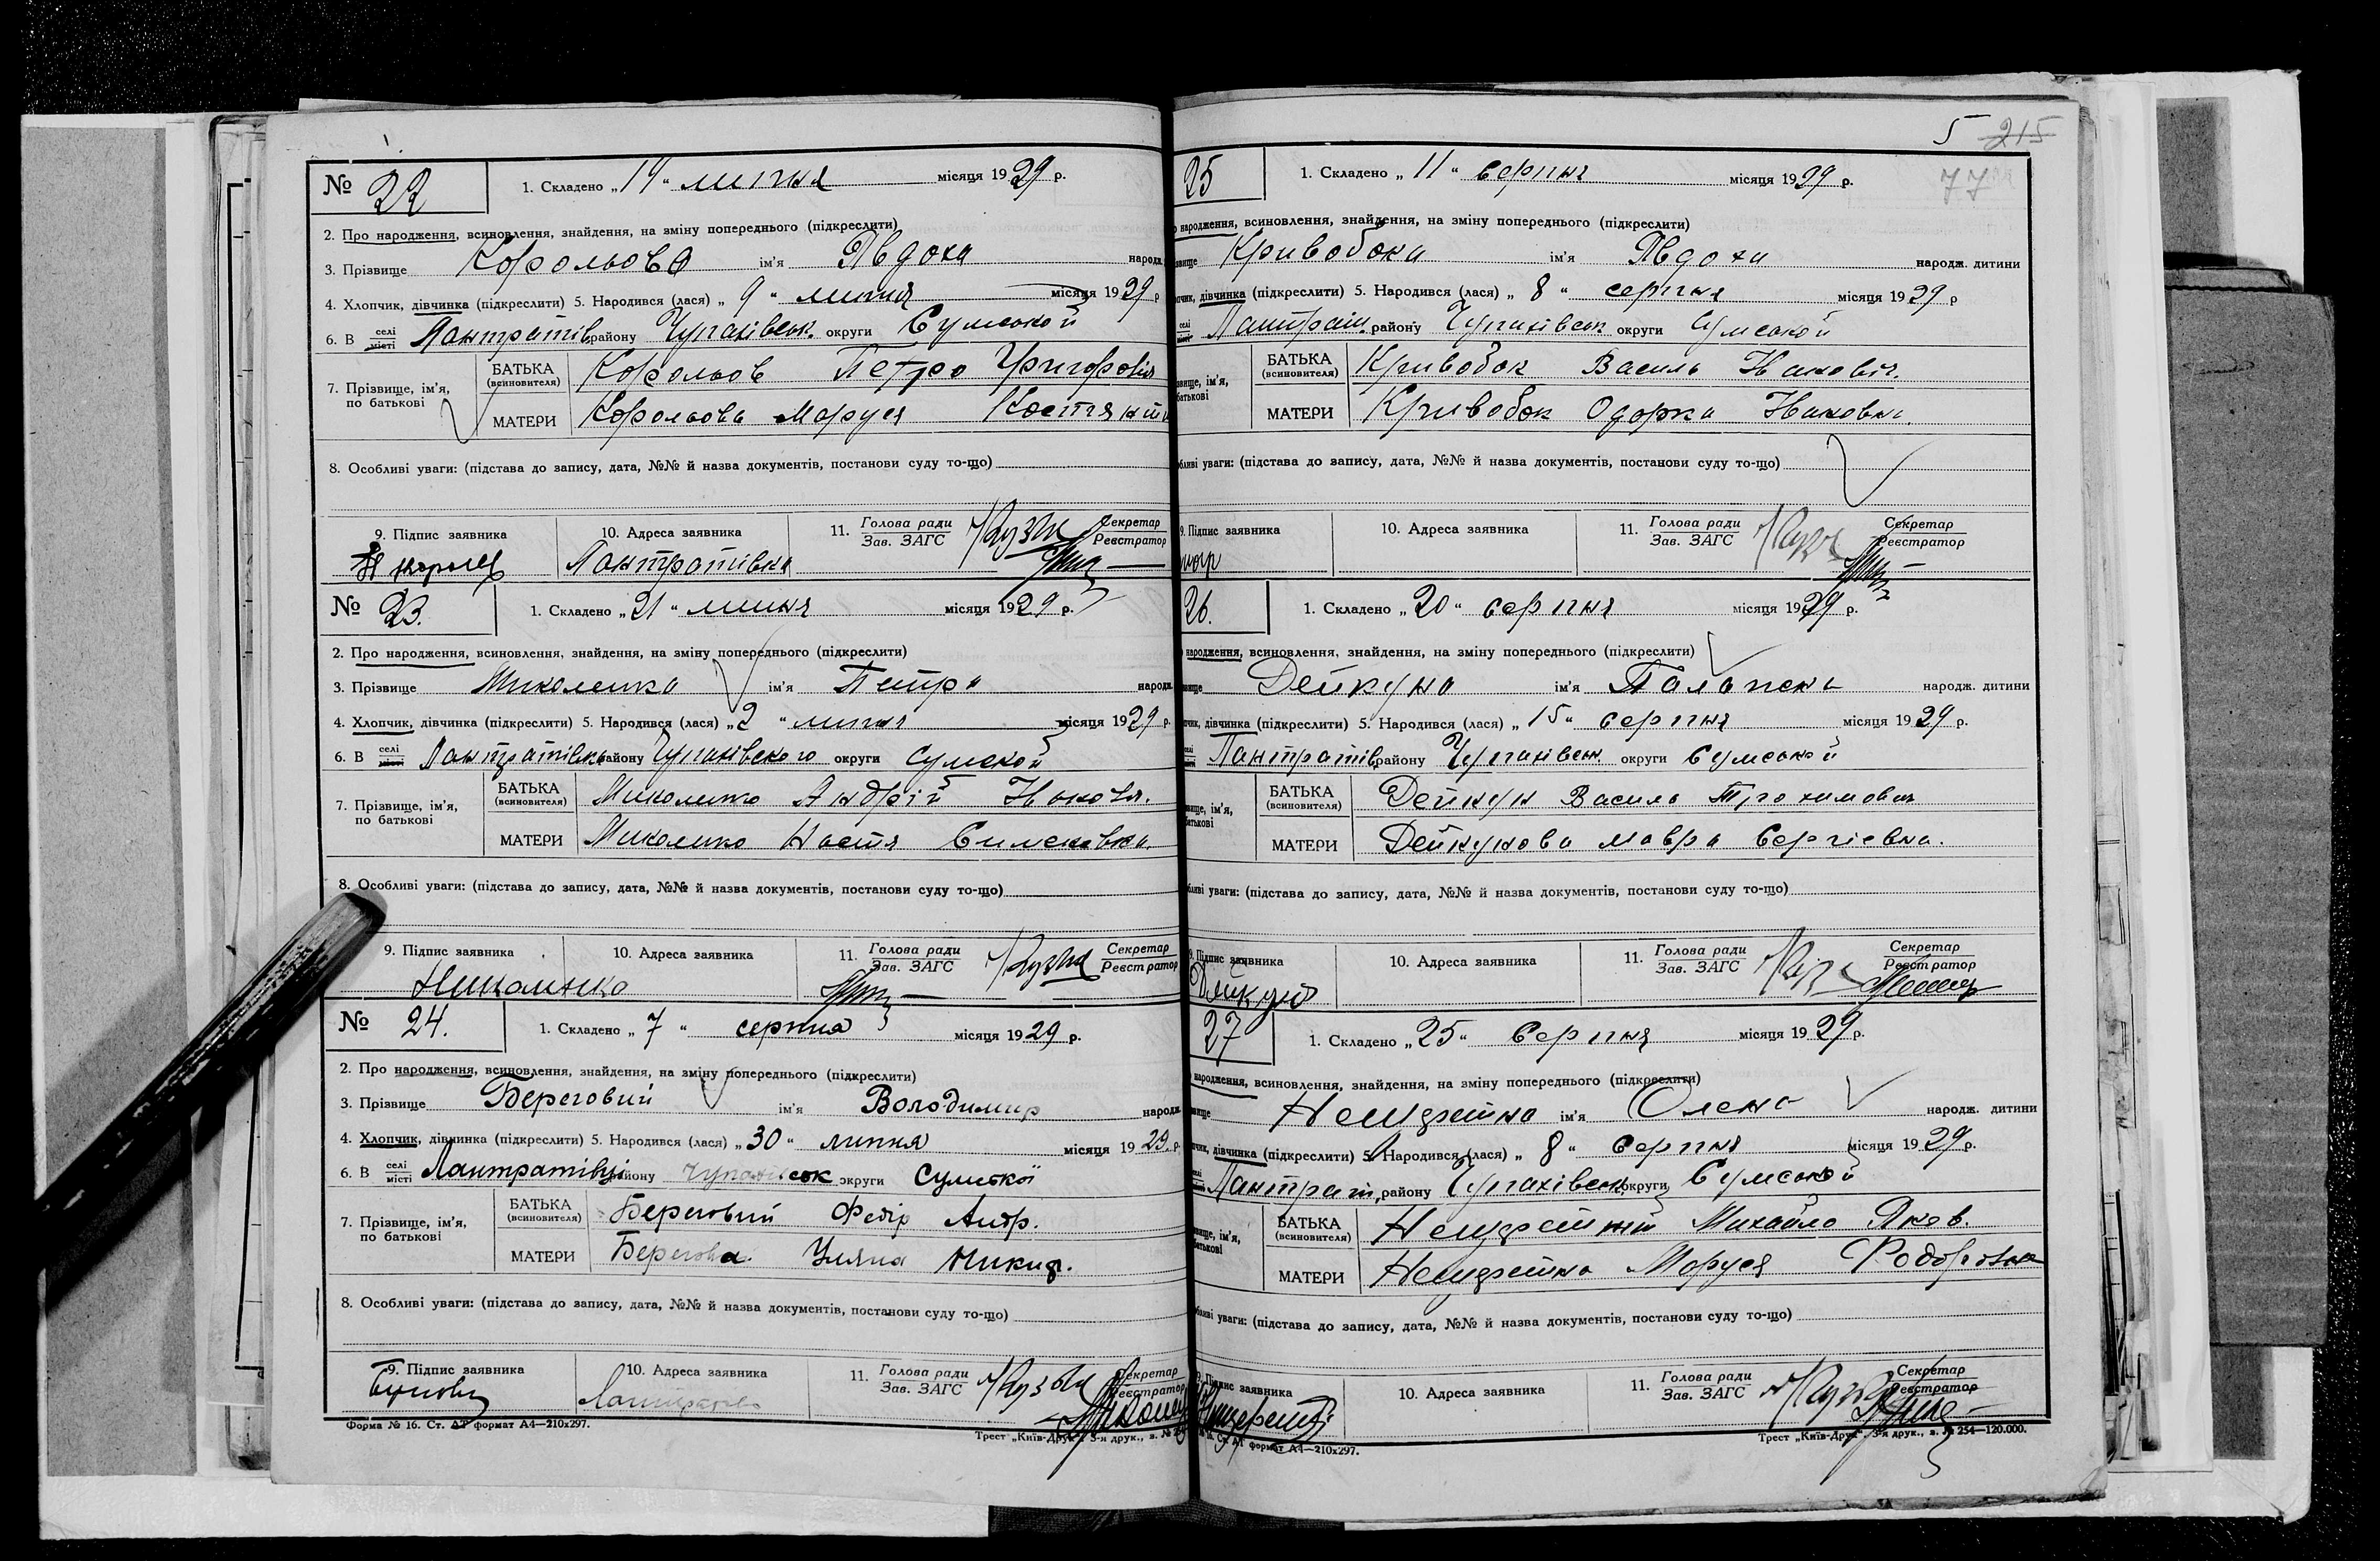 № 22
1. Складено „ 14 “ липня місяця 1929 р.
2. Про народження, всиновлення, знайдення, на зміну попереднього (підкреслити)
3. Прізвище Корольова ім'я Явдоха народж.
4. Хлопчик, дівчинка (підкреслити) 5. Народився (лася) „ 9 “ липня місяця 1929 р
6. В селі місті Лантратів. району Чупахівськ. округи Сумської
7. Прізвище, ім'я, по батькові
БАТЬКА (всиновителя) Корольов Петро Григорович
МАТЕРИ Корольова Маруся
8. Особливі уваги: (підстава до запису, дата, №№ й назва документів, постанови суду то-що)
9. Підпис заявника 10. Адреса заявника 11. Голова ради Зав. ЗАГС Секретар Реєстратор
Лантратівка
№ 23.
1. Складено „ 21 “ липня місяця 1929 р.
2. Про народження, всиновлення, знайдення, на зміну попереднього (підкреслити)
3. Прізвище Миколенко ім'я Петро народж.
4. Хлопчик, дівчинка (підкреслити) 5. Народився (лася) „ 2 “ липня місяця 1929 р.
6. В селі місті Лантратівка району Чупахівского округи Сумской
7. Прізвище, ім'я, по батькові
БАТЬКА (всиновителя) Миколенко Андрій
МАТЕРИ Миколенко Настя
8. Особливі уваги: (підстава до запису, дата, №№ й назва документів, постанови суду то-що)
9. Підпис заявника 10. Адреса заявника 11. Голова ради Зав. ЗАГС Секретар Реєстратор
№ 24.
1. Складено „ 7 “ серпня місяця 1929 р.
2. Про народження, всиновлення, знайдення, на зміну попереднього (підкреслити)
3. Прізвище Береговий ім'я Володимир народж.
4. Хлопчик, дівчинка (підкреслити) 5. Народився (лася) „ 30 “ липня місяця 1929. р
6. В селі місті Лантратівці району Чупахівськ округи Сумської
7. Прізвище, ім'я, по батькові
БАТЬКА (всиновителя) Береговий Федір Андр.
МАТЕРИ Берегова Уляна Никиф.
8. Особливі уваги: (підстава до запису, дата, №№ й назва документів, постанови суду то-що)
9. Підпис заявника 10. Адреса заявника 11. Голова ради Зав. ЗАГС Секретар Реєстратор
Форма № 16. Ст. АТ формат А4—210x297.
Трест „Київ-Друк“. 3-я друк., з. №
5 215
77
25
1. Складено „ 11 “ серпня місяця 1929 р.
народження, всиновлення, знайдення, на зміну попереднього (підкреслити)
Кривобока ім'я Явдоха народж. дитини
дівчинка (підкреслити) 5. Народився (лася) „ 8 “ серпня місяця 1929 р
селі Лантрат. району Чупахівськ округи Сумської
БАТЬКА (всиновителя) Кривобок Василь
МАТЕРИ Кривобок Одарка
уваги: (підстава до запису, дата, №№ й назва документів, постанови суду то-що)
9. Підпис заявника 10. Адреса заявника 11. Голова ради Зав. ЗАГС Секретар Реєстратор
26.
1. Складено „ 20 “ серпня місяця 1929 р.
народження, всиновлення, знайдення, на зміну попереднього (підкреслити)
Дейкуна ім'я народж. дитини
дівчинка (підкреслити) 5. Народився (лася) „ 15 “ серпня місяця 1929 р.
Лантратів. району Чупахівськ. округи Сумської
БАТЬКА (всиновителя) Дейкун Василь Трохимович
МАТЕРИ Дейкунова Мавра Сергіевна.
уваги: (підстава до запису, дата, №№ й назва документів, постанови суду то-що)
9. Підпис заявника 10. Адреса заявника 11. Голова ради Зав. ЗАГС Секретар Реєстратор
27
1. Складено „ 25 “ Серпня місяця 1929 р.
народження, всиновлення, знайдення, на зміну попереднього (підкреслити)
ім'я Олена народж. дитини
дівчинка (підкреслити) 5. Народився (лася) „ 8 “ серпня місяця 1929 р.
Лантрат. району Чупахівськ округи Сумської
БАТЬКА (всиновителя) Михайло Яков.
МАТЕРИ Маруся
уваги: (підстава до запису, дата, №№ й назва документів, постанови суду то-що)
9. Підпис заявника 10. Адреса заявника 11. Голова ради Зав. ЗАГС Секретар Реєстратор
формат А4—210x297.
Трест „Київ-Друк“. 3-я друк., з. № 254—120.000.